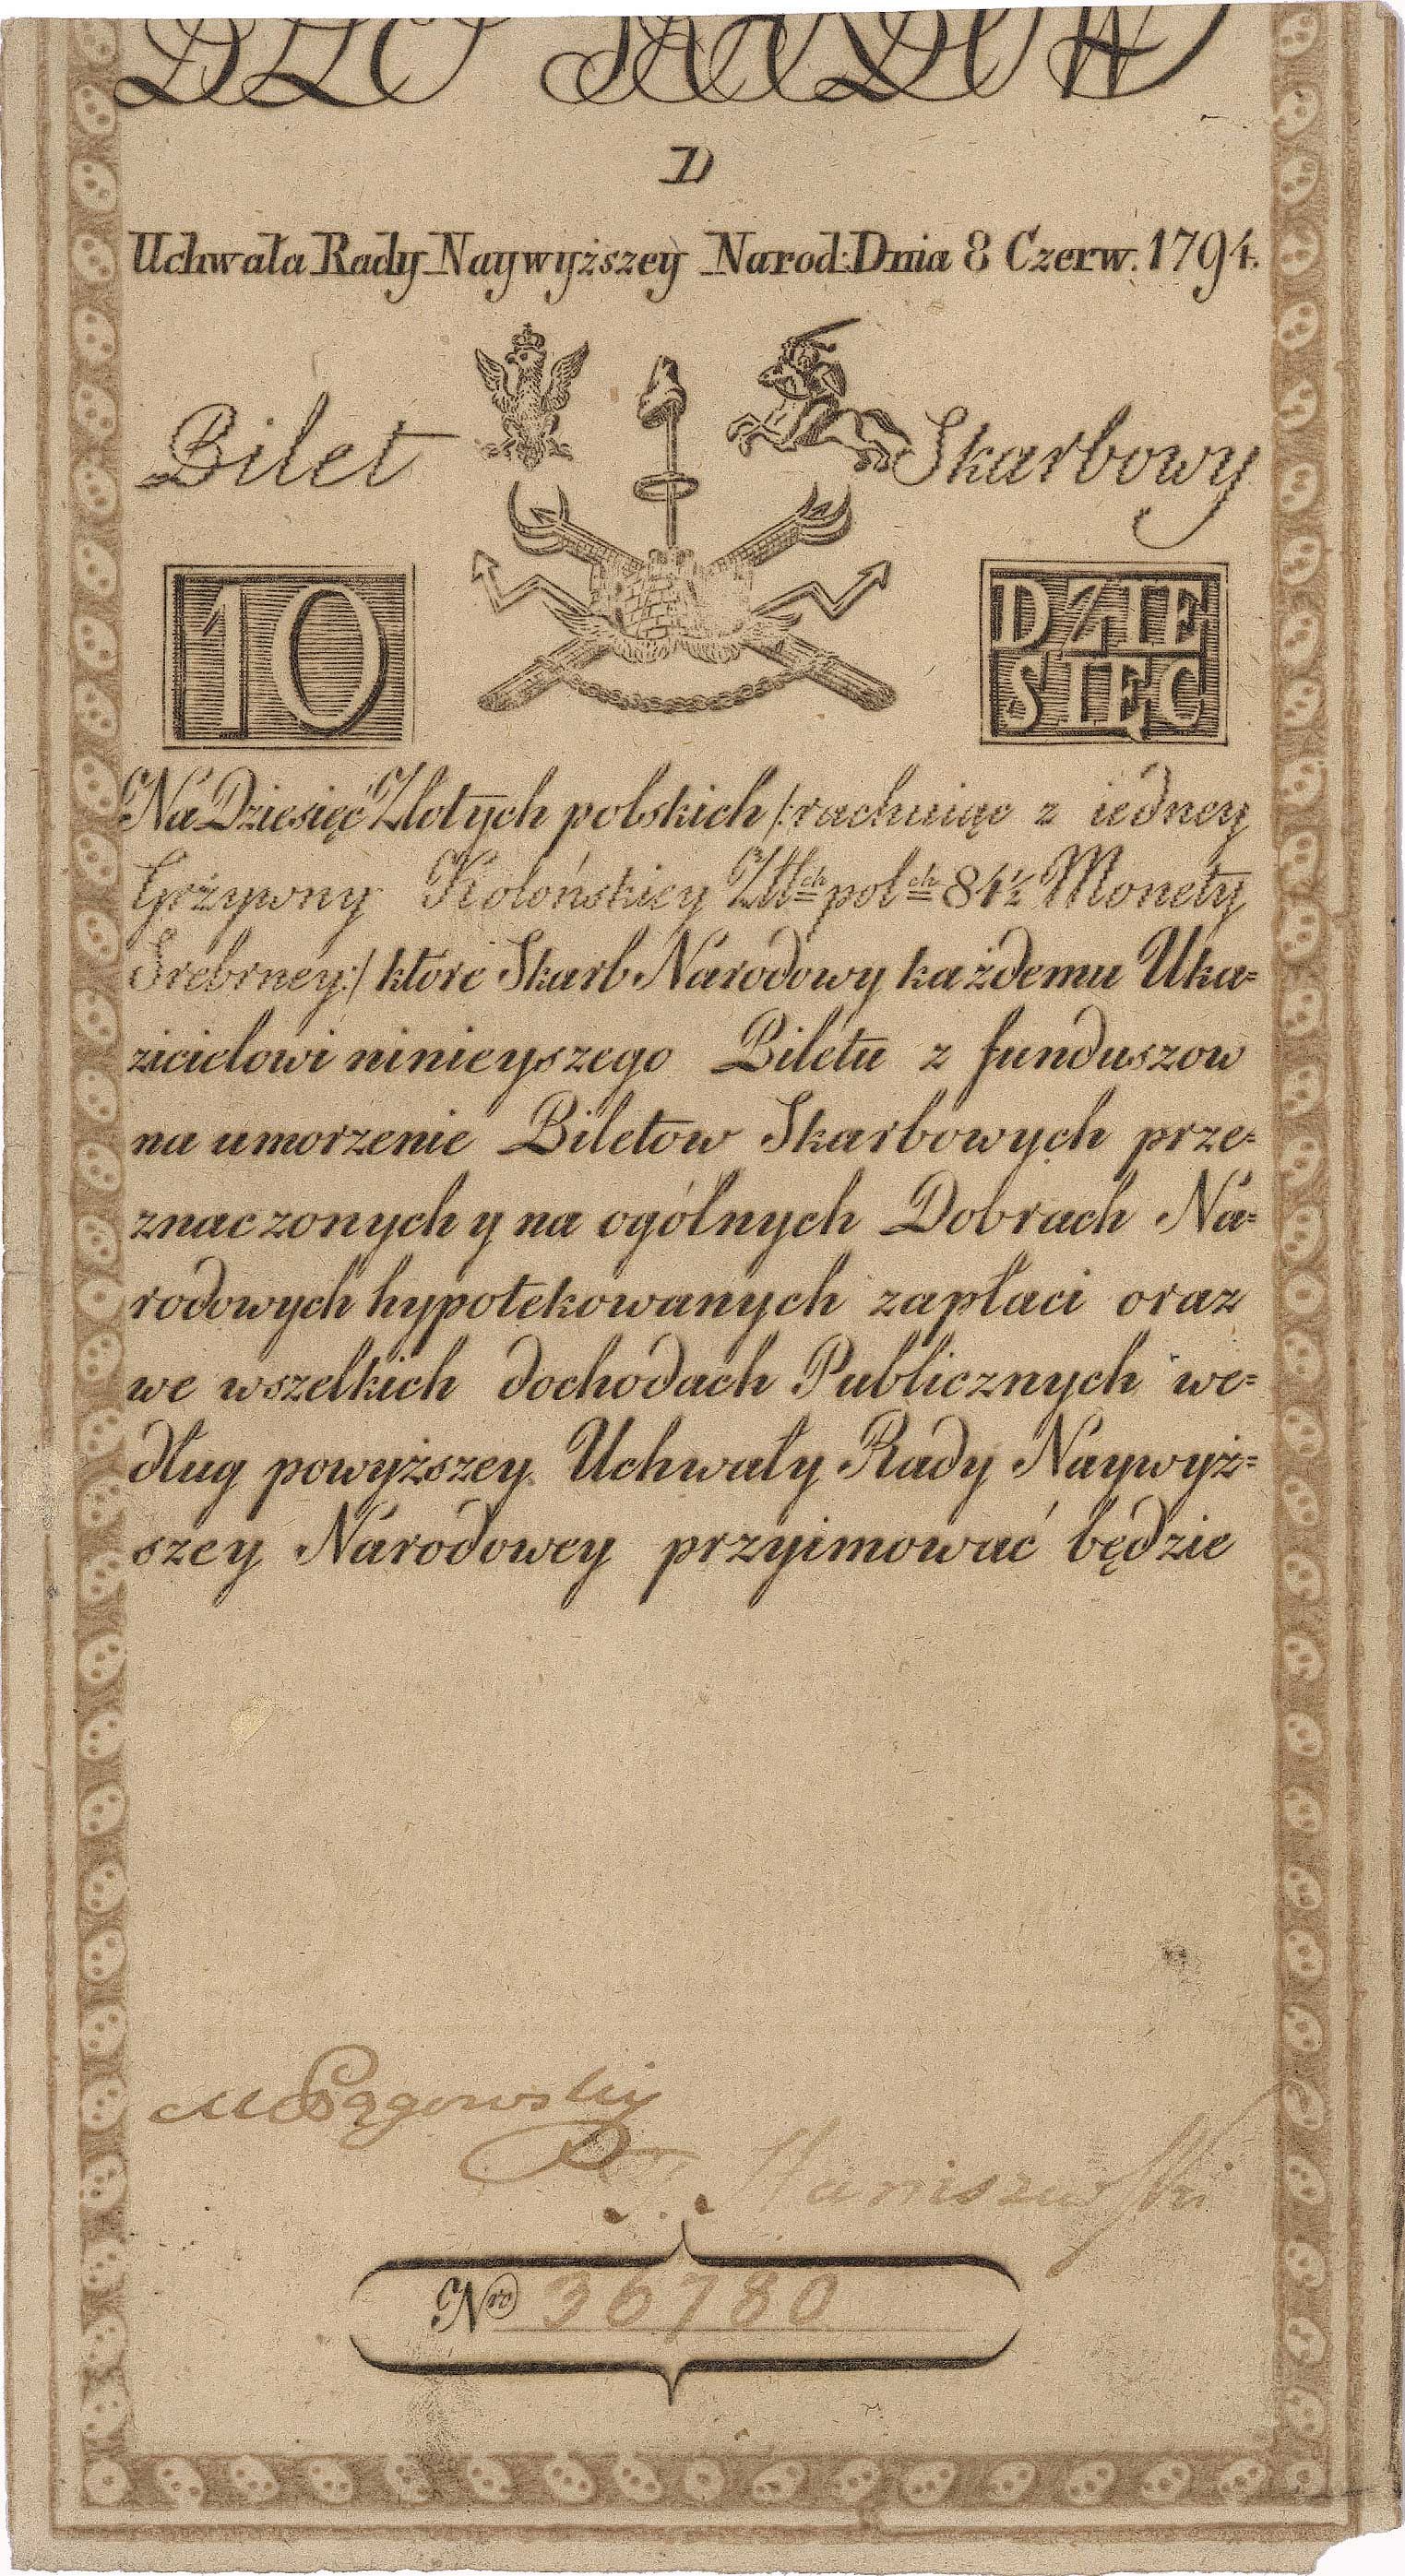 D
Uchwała Rady Naywyższey Narod: Dnia 8 Czerw. 1794.
Bilet Skarbowy
10 DZIE
SIĘC
Na Dziesięć Złotych polskich /: rachuiąc z iedney
Grzywny Kolońskiey Złł<u>ch</u> pol<u>ch</u> 84½ Monety
Srebrney:/ ktore Skarb Narodowy każdemu Uka=
zicielowi ninieyszego Biletu z funduszow
na umorzenie Biletow Skarbowych prze=
znaczonych y na ogólnych Dobrach Na=
rodowych hypotekowanych zapłaci oraz
we wszelkich dochodach Publicznych we=
dług powyższey Uchwały Rady Naywyż=
szey Narodowey przyimować będzie
Nro 36780